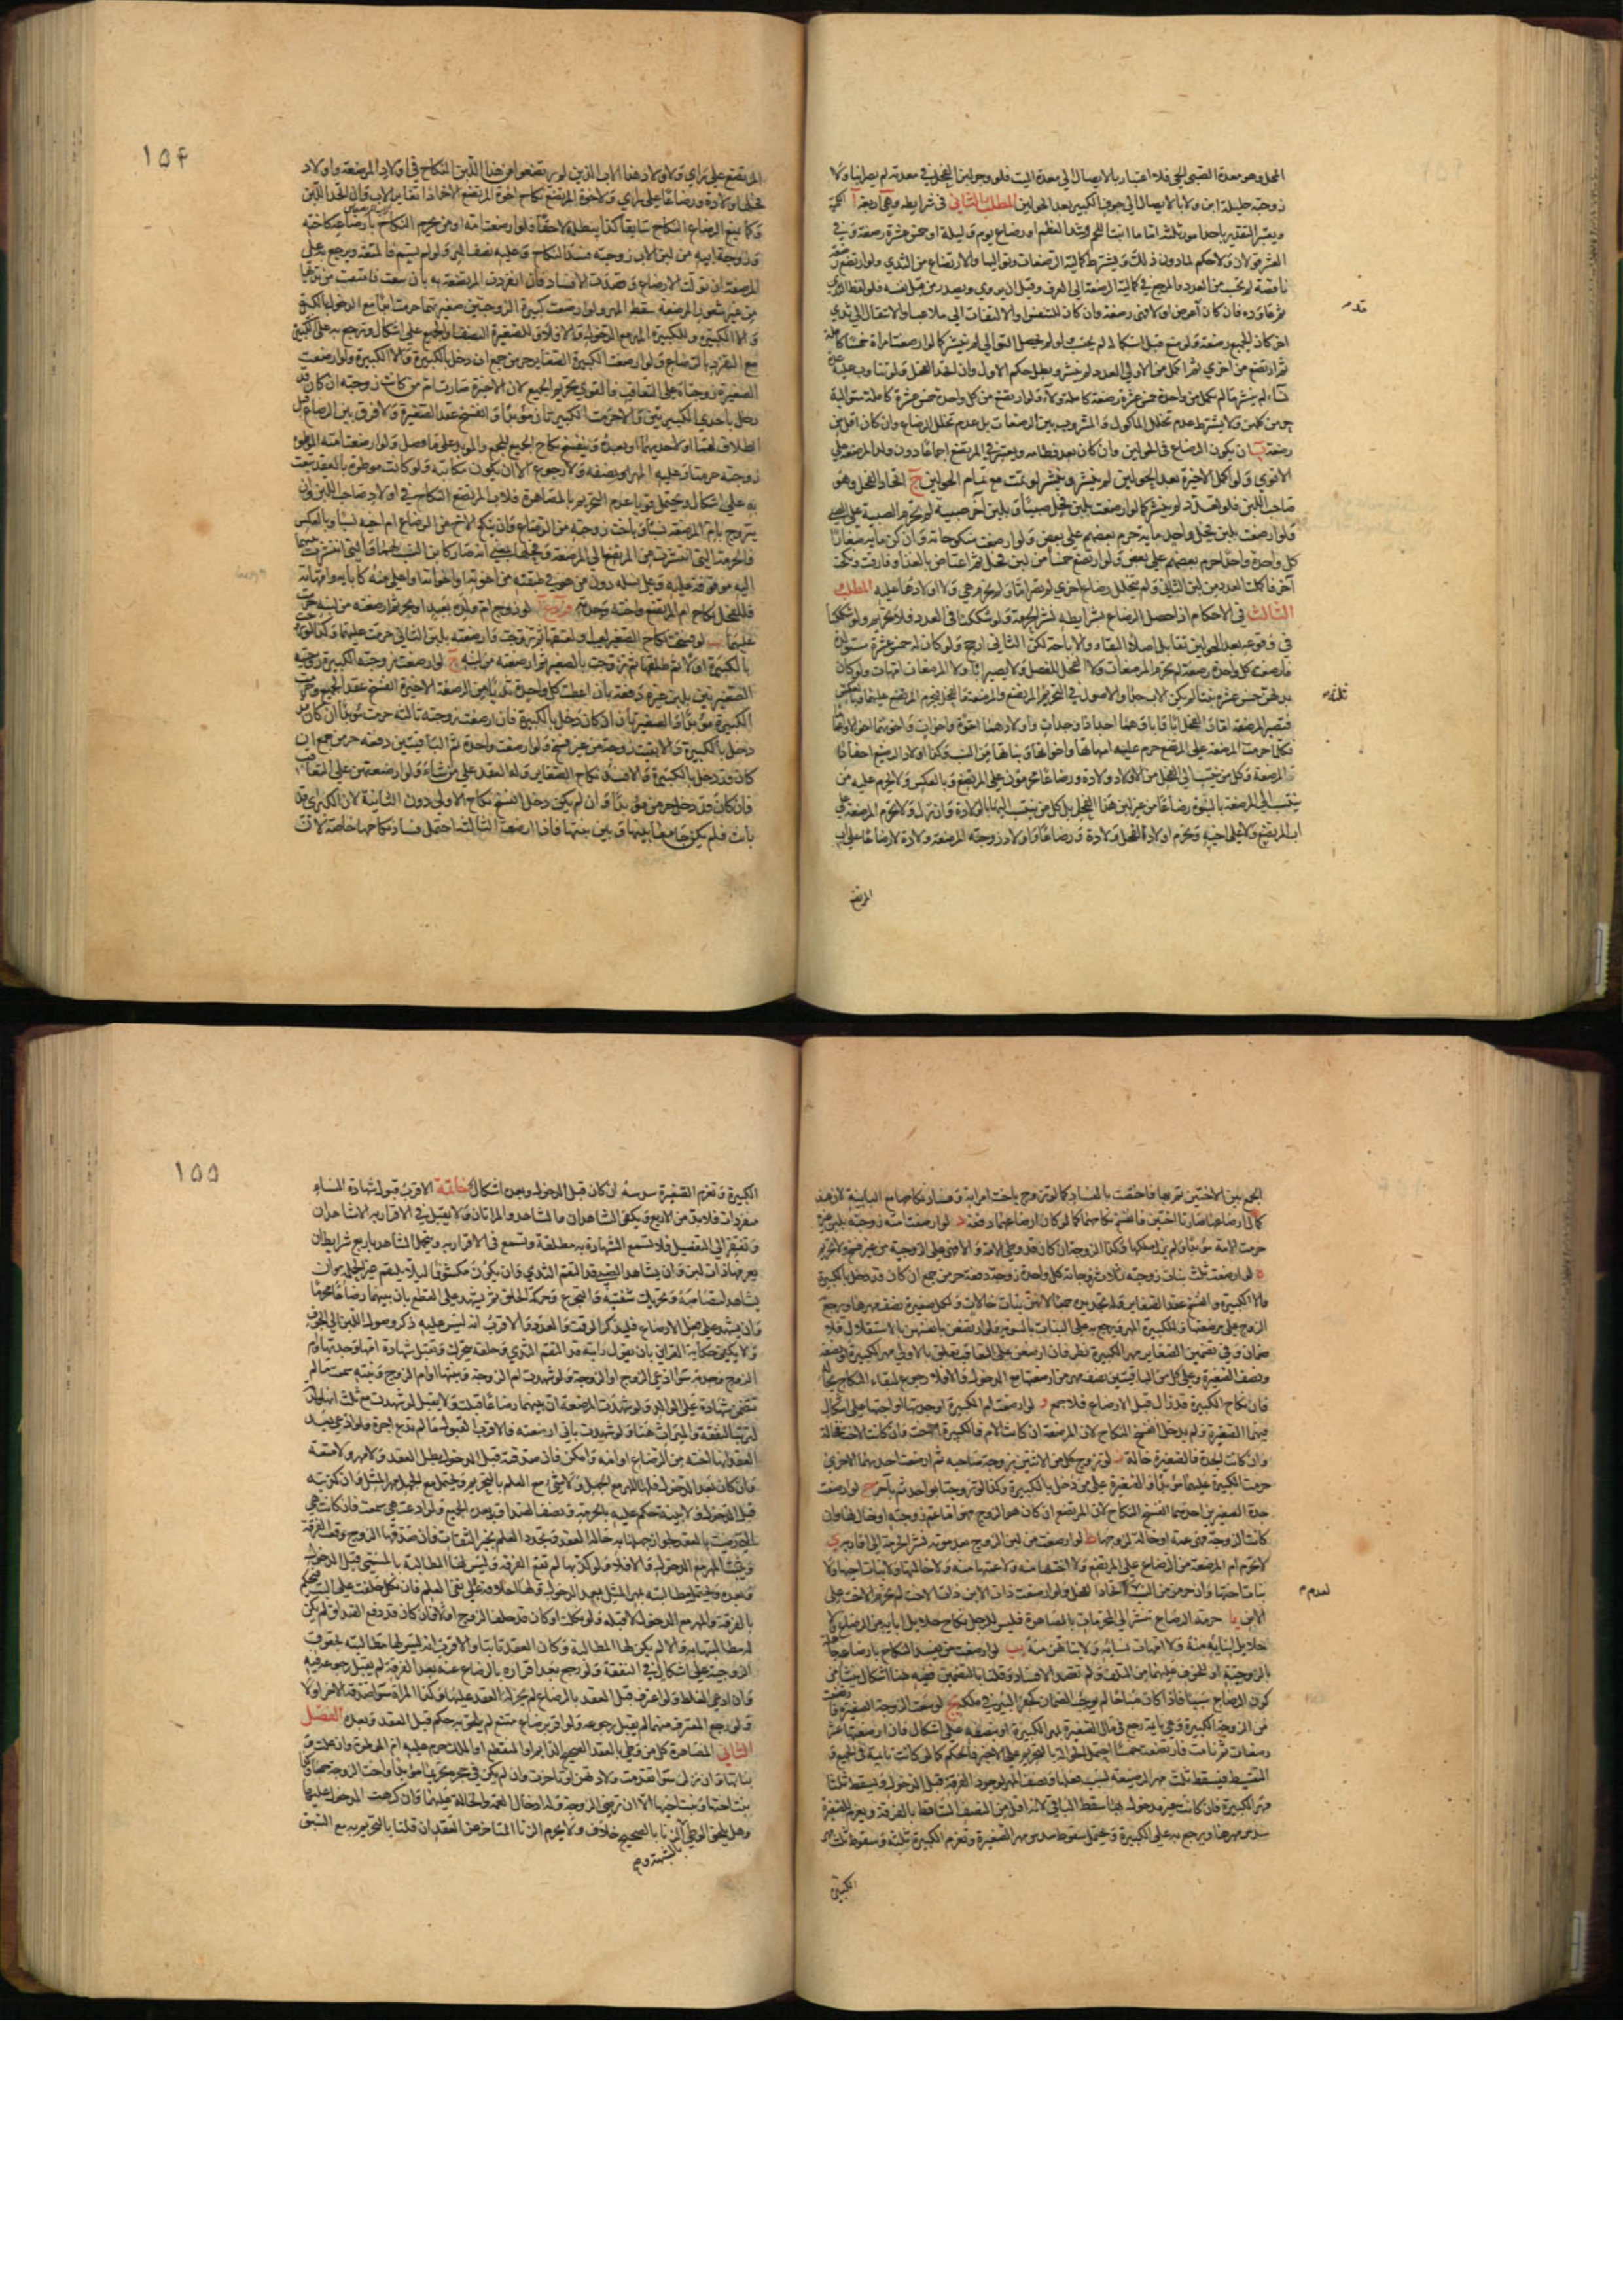 المحل وهو معدة الصبي الحي فلا اعتبار بالايصال الى معدة الميت فلو وجر لبن الفحل في معدته لم يصر ابنا ولا
زوجته حليلة ابن ولا بالايصال الى جوف الكبير بعد الحولين المطلب الثاني في شرايطه وهي اربعة آ الكمية
ويعتبر التقدير باحد امور ثلثة اما ما انبت اللحم وشد العظم او رضاع يوم وليلة او خمس عشرة رضعة وفي
العشر قولان ولا حكم لما دون ذلك ويشترط كمالية الرضعات وتواليها والارتضاع من الثدي ولو ارتضع رضعة
ناقصة لم تحسب من العدد والمرجع في كمالية الرضعة الى العرف وقيل ان يروي ويصدر من قبل نفسه فلو لفظ الثدي
ثم عاوده فان كان اعرض اولا فهي رضعة وان كان للتنفس او الالتفات الى ملاعب او الانتقال الى ثدي
قدم
اخر كان الجميع رضعة ولو منع قبل استكماله لم يحتسب ولو لم يحصل التوالي لم ينشر كما لو ارضعت امراة خمسا كاملة
ثم ارتضع من اخرى ثم اكمل من الاولى العدد لم ينشر وبطل حكم الاول وان اتحد الفحل ولو تناوب عليه عدة
نساء لم ينشر ما لم يكمل من واحدة خمس عشرة رضعة كاملة ولاء ولو ارتضع من كل واحدة خمس عشرة كاملة متوالية
حرمن كلهن ولا يشترط عدم تخلل الماكول والمشروب بين الرضعات بل عدم تخلل الرضاع وان كان اقل من
رضعة ب ان يكون الرضاع في الحولين وان كان بعد فطامه ويعتبر في المرتضع اجماعا دون ولد المرضعة على
الاقوى ولو كمل الاخيرة بعد الحولين لم ينشر وينشر لو تمت مع تمام الحولين ج اتحاد الفحل وهو
صاحب اللبن فلو تعدد لم ينشر كما لو ارضعت بلبن فحل صبيا وبلبن آخر صبية لم تحرم الصبية على الصبي
ولو ارضعت بلبن فحل واحد ماية حرم بعضهم على بعض ولو ارضعت منكوحاته وان كن ماية صغارا
كل واحدة واحدا حرم بعضهم على بعض ولو ارتضع خمسا من لبن فحل ثم اعتاض بالغذاء وفارقت ونكحت
آخر فاكملت العدد من لبن الثاني ولم يتخلل رضاع اخرى لم تصر اما ولم يحرم هي ولا اولادها عليه المطلب
الثالث في الاحكام اذا حصل الرضاع بشرايطه نشر الحرمة ولو شككنا في العدد فلا تحريم ولو شككنا
في وقوعه بعد الحولين تقابل اصلا البقاء والاباحة لكن الثاني ارجح ولو كان له خمس عشرة مستولدة
فارضعته كل واحدة رضعة لم يحرم المرضعات ولا الفحل للفصل ولا يصير ابا ولا المرضعات امهات ولو كان
ثلثة
بدلهن خمس عشرة بنتا لم يكن الاب جدا والاصول في التحريم المرتضع والمرضعة والفحل فيحرم المرتضع عليهما وبالعكس
فتصير المرضعة اما والفحل ابا واباؤهما اجدادا وجدات واولادهما اخوة واخوات واخوتهما اخوالا واعماما
فكما حرمت المرضعة على المرتضع حرم عليه امهاتها واخواتها وبناتها من النسب وكذا اولاد الرضيع احفاد
المرضعة وكل من ينتسب الى الفحل من الاولاد ولادة ورضاعا يحرمون على المرتضع وبالعكس ولا يحرم عليه من
ينتسب الى المرضعة بالبنوة رضاعا من غير لبن هذا الفحل بل كل من ينتسب اليها بالولادة وان نزل ولا تحرم المرضعة على
اب المرتضع ولا على اخيه ويحرم اولاد الفحل ولادة ورضاعا واولاد زوجته المرضعة ولادة لا رضاعا على اب
المرتضع
١٥۴
المرتضع على راي ولاولاد هذا الاب الذين لم يرتضعوا من هذا اللبن النكاح في اولاد المرضعة واولاد
فحلها ولادة ورضاعا على راي ولاخوة المرتضع نكاح اخوة المرتضع الاخر اذا تغاير الاب وان اتحد اللبن
وكما يمنع الرضاع النكاح سابقا كذا يبطله لاحقا فلو ارضعت امه او من يحرم النكاح بارضاعه كاخته
وزوجة ابيه من لبن الاب زوجته فسد النكاح وعليه نصف المهر ولو لم يسم فالمتعة ويرجع به على
المرضعة ان تولت الارضاع وقصدت الافساد فان انفردت المرتضعة به بان سعت فامتصت من ثديها
من غير شعور المرضعة سقط المهر ولو ارضعت كبيرة الزوجتين صغيرتهما حرمتا ابدا مع الدخول بالكبيرة
والا الكبيرة وللكبيرة المهر مع الدخول والا فلا وللصغيرة النصف او الجميع على اشكال ويرجع به على الكبيرة
مع التفرد بالرضاع ولو ارضعت الكبيرة الصغاير حرمن جمع ان دخل بالكبيرة والا الكبيرة ولو ارضعت
الصغيرة زوجتاه على التعاقب فالاقوى تحريم الجميع لان الاخيرة صارت ام من كانت زوجته ان كان قد
دخل باحدى الكبيرتين والا حرمت الكبيرتان مؤبدا وانفسخ عقد الصغيرة ولا فرق بين الرضاع قبل
الطلاق لهما او لاحديهما او بعده وينفسخ نكاح الجميع للجمع والمؤبد على ما فصل ولو ارضعت امته الموطوءة
زوجته حرمتا وعليه المهر او نصفه ولا رجوع الا ان يكون مكاتبة ولو كانت موطوءة بالعقد تبعت
به على اشكال ويحتمل قويا عدم التحريم بالمصاهرة فلاب المرتضع النكاح في اولاد صاحب اللبن وان
يتزوج بام المرضعة نسبا وباخت زوجته من الرضاع وان ينكح الاخ من الرضاع ام اخيه نسبا وبالعكس
والحرمة التي انتشرت من المرتضع الى المرضعة وفحلها بمعنى انه صار كابن النسب لهما والتي انتشرت منهما
اليه موقوفة عليه وعلى نسله دون من هو في طبقته من اخوته واخواته او اعلى منه كابائه وامهاته
فللفحل نكاح ام المرتضع واخته وجدته فروع آ لو زوج ام ولده بعبده او بحر ثم ارضعته من لبنه حرمت
عليهما ب لو فسخت نكاح الصغير لعيب او لعتقها ثم تزوجت وارضعته بلبن الثاني حرمت عليهما وكذا لو تزوج
بالكبيرة اولا ثم طلقها ثم تزوجت بالصغير ثم ارضعته من لبنه ج لو ارضعت زوجته الكبيرة زوجتيه
الصغيرتين بلبن غيره دفعة بان اعطت كل واحدة ثديا من الرضعة الاخيرة انفسخ عقد الجميع وحرمت
الكبيرة مؤبدا والصغيرتان ان كان دخل بالكبيرة فان ارضعت زوجته ثالثة حرمت مؤبدا ان كان
دخل بالكبيرة والا بقيت زوجة من غير فسخ ولو ارضعت واحدة ثم الباقيتين دفعة حرمن جمع ان
كان قد دخل بالكبيرة والا فسد نكاح الصغاير وله العقد على من شاء ولو ارضعتهن على التعاقب
فان كان قد دخل حرمن مؤبدا وان لم يكن دخل انفسخ نكاح الاولى دون الثانية لان الكبرى قد
بانت فلم يكن جامعا بينها وبين بنتها فاذا ارضعت الثالثة احتمل فساد نكاحها خاصة لان
الجمع بين الاختين تم بها فاختصت بالفساد كما لو تزوج باخت امراته وفساد نكاحها مع الثانية لان عند
كمال رضاعها صارتا اختين فانفسخ نكاحهما كما لو كان ارضاعهما دفعة د لو ارضعت امته زوجته بلبن غيره
حرمت الامة مؤبدا ولم يزل ملكها وكذا الزوجة ان كان قد وطى الامة والا فهي على الزوجية من غير فسخ ولا تحريم
ه لو ارضعت ثلث بنات زوجته ثلاث زوجاته كل واحدة زوجة دفعة حرمن جمع ان كان قد دخل بالكبيرة
والا الكبيرة وانفسخ عقد الصغاير وله تجديده جمعا لانهن بنات خالات ولكل صغيرة نصف مهرها ويرجع
الزوج على مرضعتها وللكبيرة المهر ويرجع به على البنات بالسوية ولو ارتضعن بانفسهن بالاستقلال فلا
ضمان وفي تضمين الصغاير مهر الكبيرة نظر فان ارضعن على التعاقب تعلق بالاولى مهر الكبيرة او نصفه
ونصف الصغيرة وعلى كل من الباقيتين نصف مهر من ارضعتها مع الدخول والا فلا رجوع لبقاء النكاح بحاله
فان نكاح الكبيرة قد زال قبل الارضاع فلا جمع و لو ارضعت ام الكبيرة او جدتها او اختها على اشكال
فيهما الصغيرة ولم يدخل انفسخ النكاح لان المرضعة ان كانت الام فالكبيرة اخت وان كانت الاخت فخالة
وان كانت الجدة فالصغيرة خالة ز لو تزوج كل من الاثنين بزوجة صاحبه ثم ارضعت احديهما الاخرى
حرمت الكبيرة عليهما مؤبدا والصغيرة على من دخل بالكبيرة وكذا لو تزوجتا بواحد ثم باخر ح لو ارضعت
جدة الصغيرين احدهما انفسخ النكاح لان المرتضع ان كان هو الزوج فهو اما عم لزوجته او خال لها وان
كانت الزوجة فهي عمة او خالة لزوجها ط لو ارضعت من لبن الزوج بعد موته نشر الحرمة الى اقاربه ي
لا تحرم ام المرضعة من الرضاع على المرتضع ولا اختها منه ولا عمتها منه ولا خالتها ولا بنات اخيها ولا
لعدم
بنات اختها وان حرمن من النسب اتحاد الفحل ولو ارضعت ذات الابن ذات الاخت لم تحرم الاخت على
الابن يا حرمة الرضاع تنشر الى المحرمات بالمصاهرة فليس للرجل نكاح حلايل ابائه من الرضاع ولا
حلايل ابنائه منه ولا امهات نسائه ولا بناتهن منه يب لو ارضعت من يفسد النكاح بارضاعه جاهلة
بالزوجية او للخوف عليها من التلف ولم تقصد الافساد وقلنا بالتضمين ففيه هنا اشكال ينشا من
كون الرضاع سببا فاذا كان مباحا لم يوجب الضمان كحفر البئر في ملكه يج لو سعت الزوجة الصغيرة فارتضعت
من الزوجة الكبيرة وهي نايمة رجع في مال الصغيرة بمهر الكبيرة او نصفه على اشكال فان ارضعتها عشر
رضعات ثم نامت فارتضعت خمسا احتمل الحوالة بالتحريم على الاخير فالحكم كما لو كانت نايمة في الجميع و
التقسيط فيسقط ثلث مهر المرضعة بسبب فعلها ونصف المهر لوجود الفرقة قبل الدخول ويسقط ثلثا
مهر الكبيرة فان كانت غير مدخول بها سقط الباقي لانه اقل من النصف الساقط بالفرقة ويغرم للصغيرة
سدس مهرها ويرجع به على الكبيرة ويحتمل سقوط سدس مهر الصغيرة وتغرم الكبيرة ثلثه وسقوط ثلث مهر
الكبيرة
١٥٥
الكبيرة وتغرم الصغيرة سدسه ان كان قبل الدخول وبعده اشكال خاتمة الاقرب قبول شهادة النساء
منفردات فلا بد من الاربع ويكفي الشاهدان والشاهد والمراتان ولا يقبل في الاقرار به الا شاهدان
وتفتقر الى التفصيل فلا تسمع الشهادة به مطلقة وتسمع في الاقرار به ويتحمل الشاهد باربع شرايط ان
يعرفها ذات لبن وان يشاهد الصبي قد التقم الثدي وان يكون مكشوفا ليلا يلتقم غير الحلمة وان
يشاهد امتصاصه وتحريك شفتيه والتجرع وحركة الحلق ثم يشهد على القطع بان بينهما رضاعا محرما
وان يشهد على فعل الارضاع فليذكر الوقت والعدد والاقرب انه ليس عليه ذكر وصول اللبن الى الجوف
ولا يكفي حكاية القراين بان يقول رايته قد التقم الثدي وحلقه يتحرك وتقبل شهادة امها وجدتها وام
الزوج وجدته سواء ادعى الزوج او الزوجة ولو شهدت ام الزوجة وبنتها او ام الزوج وبنته سمعت ما لم
تتضمن شهادة على الوالد ولو شهدت المرضعة ان بينهما رضاعا قبلت ولا يقبل لو شهدت مع ثلث انها ولدته
لترتب النفقة والميراث هنا ولو شهدت باني ارضعته فالاقرب القبول ما لم تدع اجرة ولو ادعى بعد
العقد انها اخته من الرضاع او امه وامكن فان صدقته قبل الدخول بطل العقد ولا مهر ولا متعة
وان كان بعد الدخول فلها المهر مع الجهل ولا شيء مع العلم بالتحريم ويحتمل مع الجهل مهر المثل وان كذبته
قبل الدخول ولا بينة حكم عليه بالحرمة وبنصف الصداق وبعده الجميع ولو ادعت هي سمعت فان كانت هي
التي رضيت بالعقد لجواز جهلها به حالة العقد وتجدد العلم بخبر الثقات فان صدقها الزوج وقعت الفرقة
وثبت المهر مع الدخول والا فلا ولو كذبها لم تقع الفرقة وليس لها المطالبة بالمسمى قبل الدخول
وبعده ويحتمل مطالبته بمهر المثل بعد الدخول ولها احلافه على نفي العلم فان نكل حلفت على البت فيحكم
بالفرقة والمهر مع الدخول لا قبله ولو نكلت او كان قد حلف الزوج اولا فان كان قد دفع الصداق لم يكن
له مطالبتها به والا لم يكن لها المطالبة وكان العقد ثابتا والاقرب انه ليس لها مطالبته بحقوق
الزوجية على اشكال في النفقة ولو رجع بعد اقراره بالرضاع عنه بعد الفرقة لم يقبل رجوعه فيه
وان ادعى الغلط ولو اعترف قبل العقد بالرضاع لم يجز له العقد عليها وكذا المراة سواء صدقه الاخر او لا
ولو رجع المعترف منهما لم يقبل رجوعه ولو اقر برضاع ممتنع لم يلتفت حكم قبل العقد وبعده الفصل
الثاني المصاهرة كل من وطى بالعقد الصحيح الدايم او المنقطع او الملك حرم عليه ام الموطوءة وان علت و
بناتها وان نزلن سواء تقدمت ولادتهن او تاخرت وان لم يكن في حجره تحريما مؤبدا واخت الزوجة جمعا وكذا
بنت اختها وبنت اخيها الا ان ترضى الزوجة وله ادخال العمة والخالة عليهما وان كرهت المدخول عليها
وهل يلحق الوطى الزنا بالصحيح خلاف ولا يحرم الزنا المتاخر عن العقد ان قلنا بالتحريم به مع السبق
بالشبهة و